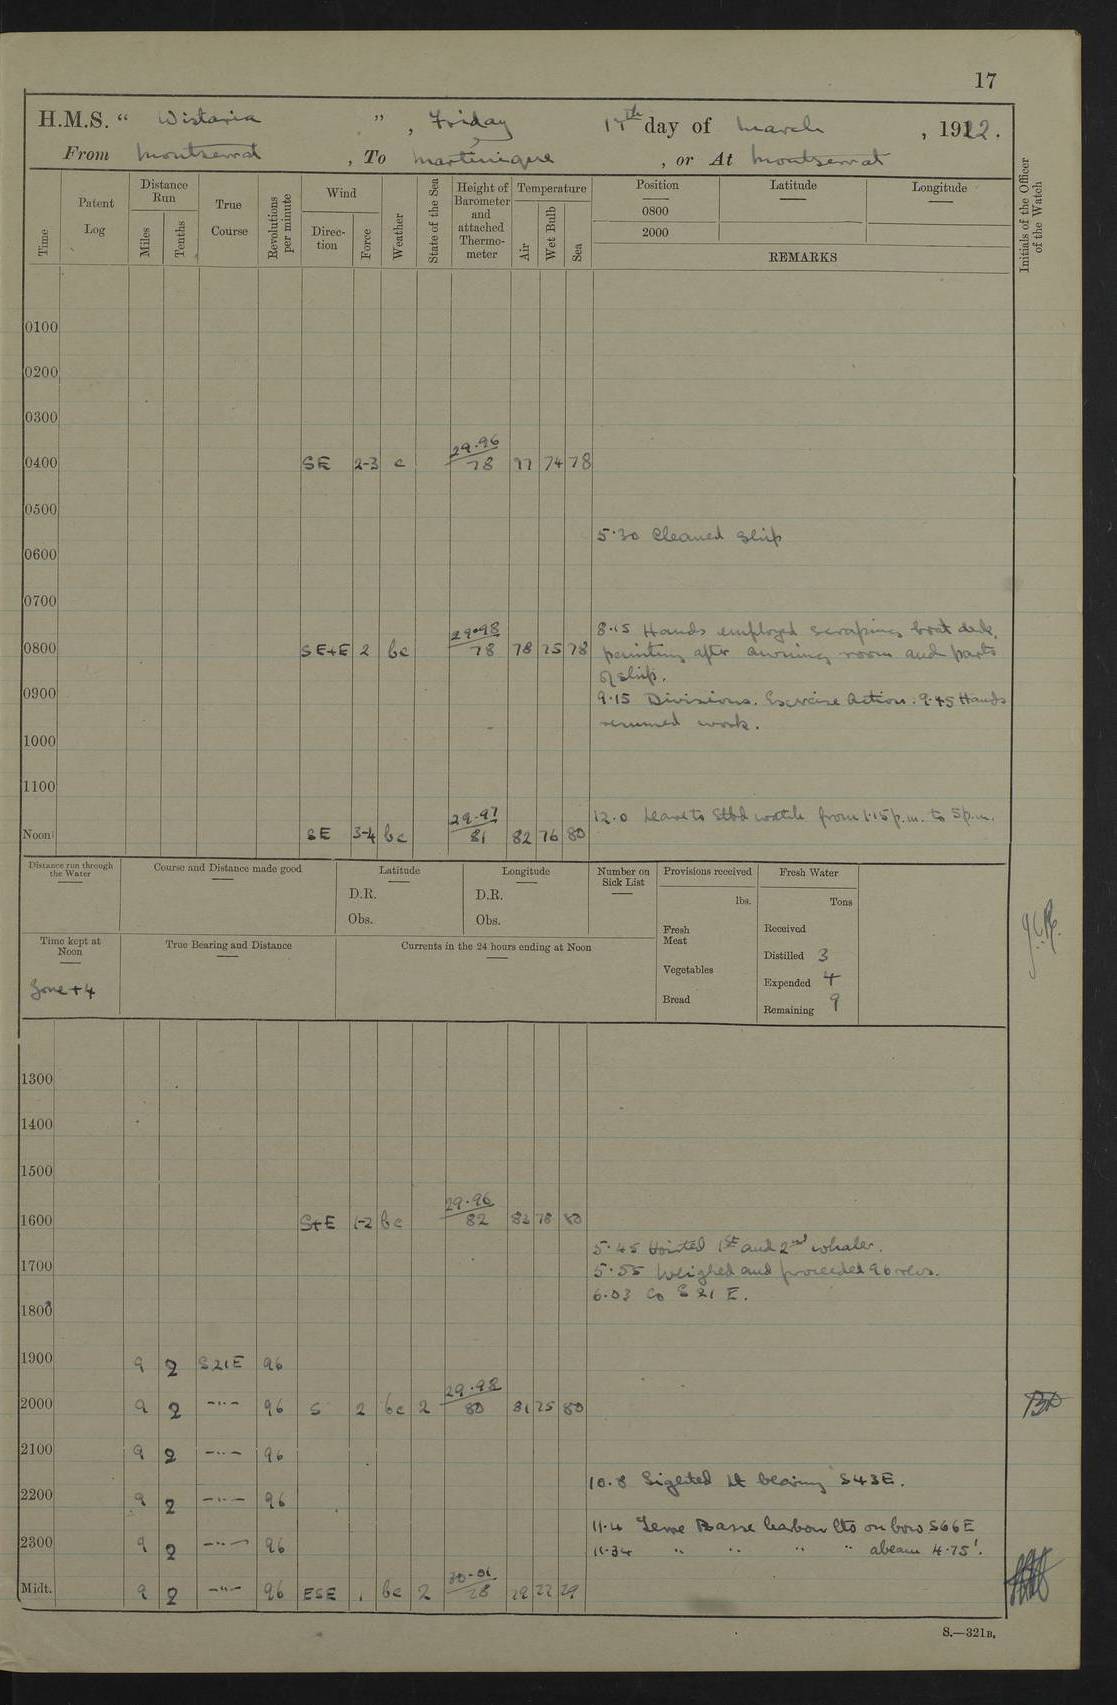 17
H.M.S. " Wistaria ", Friday 17th day of March, 1922.
From Montserrat, To Martinique, or At Montserrat
Time
Patent Log
Distance Run
Miles
Tenths
True Course
Revolutions per minute
Wind
Direction
Force
Weather
State of the Sea
Height of Barometer and attached Thermometer
Temperature
Air
Wet Bulb
Sea
Position
Latitude
Longitude
0800
2000
REMARKS
Initials of the Officer of the Watch
0100
0200
0300
0400 SE 2-3 c 29.96 78 77 74 78
0500
5.30 Cleaned ship
0600
0700
8.15 Hands employed scraping boat deck,
0800 SE+E 2 bc 29.98 78 78 75 78 painting after awning room and parts
of ship.
0900 9.15 Divisions. Exercise Action. 9.45 Hands
resumed work.
1000
1100
12.0 Leave to Stbd watch from 1.15 p.m. to 5 p.m.
Noon SE 3-4 bc 29.97 81 82 76 80
Distance run through the Water
Course and Distance made good
Latitude
D.R.
Obs.
Longitude
D.R.
Obs.
Number on Sick List
Provisions received
lbs.
Fresh Meat
Vegetables
Bread
Fresh Water
Tons
Received
Distilled 3
Expended 4
Remaining 9
Time kept at Noon
Zone +4
True Bearing and Distance
Currents in the 24 hours ending at Noon
1300
1400
1500
1600 S+E 1-2 bc 29.96 82 82 78 80
5.45 Hoisted 1st and 2nd whaler.
1700 5.55 Weighed and proceeded 96 revs.
6.03 Co S 21 E.
1800
1900 9 2 S21E 96
2000 9 2 —"— 96 S 2 bc 2 29.98 80 81 75 80
2100 9 2 —"— 96
10.8 Sighted Lt bearing S43E.
2200 9 2 —"— 96
11.4 Terre Basse harbour lts on bow S66E
2300 9 2 —"— 96
11.34 " " " " abeam 4.75'.
Midt. 9 2 —"— 96 ESE 1 bc 2 30.01 78
S.—321B.